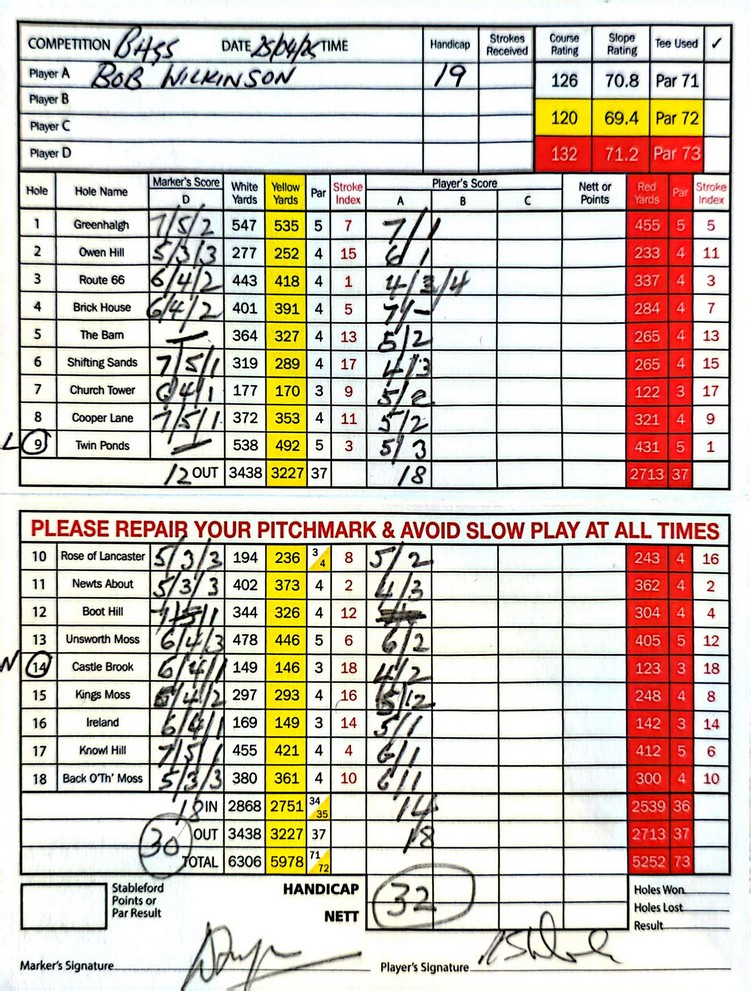 COMPETITION DATE 25/04/25 TIME Handicap Strokes Received Course Rating Slope Rating Tee Used ✓
Player A BOB WILKINSON 19 126 70.8 Par 71
Player B
Player C 120 69.4 Par 72
Player D 132 71.2 Par 73
Hole Hole Name Marker's Score D White Yards Yellow Yards Par Stroke Index Player's Score A B C Nett or Points Red Yards Par Stroke Index
1 Greenhalgh 7/5/2 547 535 5 7 7/1 455 5 5
2 Owen Hill 5/3/3 277 252 4 15 6/1 233 4 11
3 Route 66 6/4/2 443 418 4 1 4/3/4 337 4 3
4 Brick House 6/4/2 401 391 4 5 7/- 284 4 7
5 The Barn — 364 327 4 13 5/2 265 4 13
6 Shifting Sands 7/5/1 319 289 4 17 4/3 265 4 15
7 Church Tower 6/4/1 177 170 3 9 5/2 122 3 17
8 Cooper Lane 7/5/1 372 353 4 11 5/2 321 4 9
L 9 Twin Ponds — 538 492 5 3 5/3 431 5 1
12 OUT 3438 3227 37 18 2713 37
PLEASE REPAIR YOUR PITCHMARK & AVOID SLOW PLAY AT ALL TIMES
10 Rose of Lancaster 5/3/3 194 236 3/4 8 5/2 243 4 16
11 Newts About 5/3/3 402 373 4 2 4/3 362 4 2
12 Boot Hill 7/5/1 344 326 4 12 304 4 4
13 Unsworth Moss 6/4/3 478 446 5 6 6/2 405 5 12
N 14 Castle Brook 6/4/1 149 146 3 18 4/2 123 3 18
15 Kings Moss 4/2 297 293 4 16 5/2 248 4 8
16 Ireland 6/4/1 169 149 3 14 5/1 142 3 14
17 Knowl Hill 7/5/1 455 421 4 4 6/1 412 5 6
18 Back O'Th' Moss 5/3/3 380 361 4 10 6/1 300 4 10
18 IN 2868 2751 34/35 14 2539 36
OUT 3438 3227 37 18 2713 37
30 TOTAL 6306 5978 71/72 5252 73
Stableford Points or Par Result HANDICAP NETT 32 Holes Won
Holes Lost
Result
Marker's Signature Player's Signature